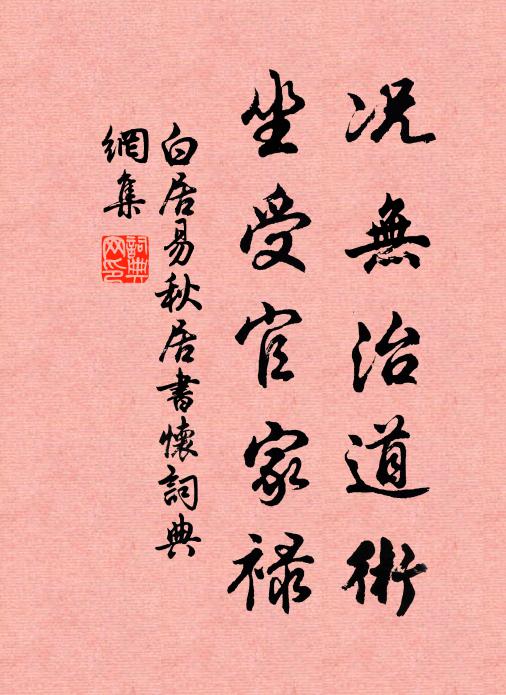 况無治道術
坐受官家禄
白居易秋居書懷詞典
網集
詞典
网印